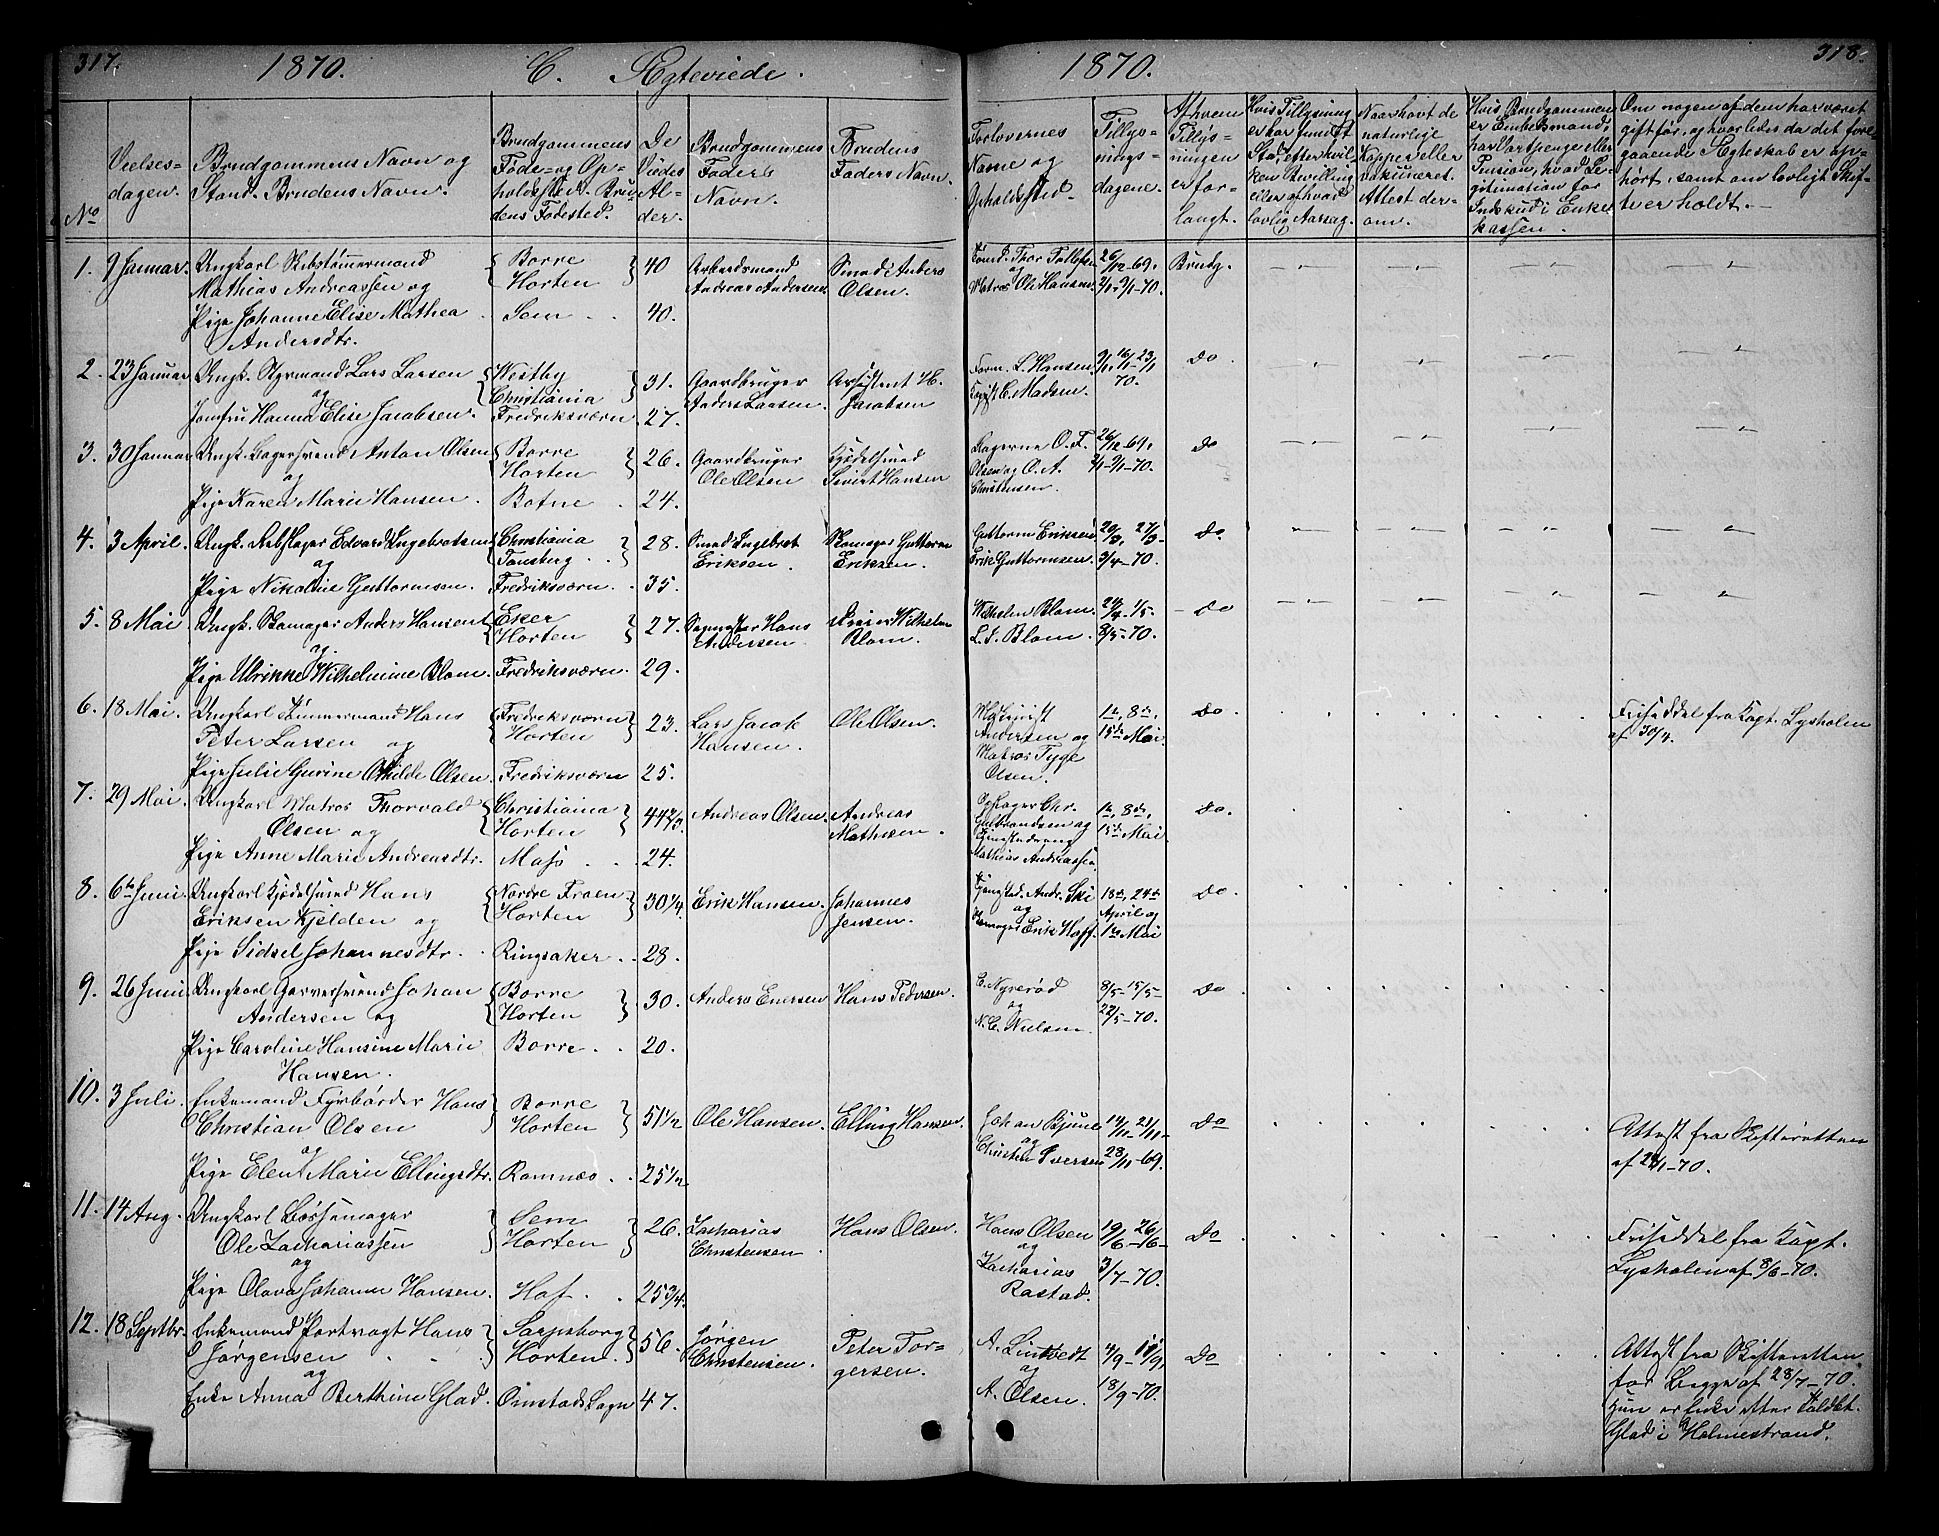 317.
1870. C. Ægteviede.
No
Vielses-
dagen.
Brudgommens Navn og
Stand. Brudens Navn.
Brudgommens
Føde- og Op-
holdssted. Bru-
dens Fødested.
De
Viedes
Al-
der.
Brudgommens
Faders
Navn.
Brudens
Faders Navn.
1. 9 Januar. Ungkarl Skibstømmermand { Borre } 40 Arbeidsmand Smed Anders
Mathias Andreassen og { Horten } Andreas Andersen. Olsen.
Pige Johanne Elise Mathea Sem 40.
Andersdtr.
2. 23 Januar Ungk. Styrmand Lars Larsen { Westby } 31. Gaardbruger Assistent H.
og { Christiania } Anders Larsen. Jacobsen
Jomfru Hanna Elise Jacobsen. Fredriksværn 27.
3. 30 Januar Ungk. Bagersvend Anton Olsen { Borre } 26. Gaardbruger Kjedelsmed
og { Horten } Ole Olsen Sivert Hansen
Pige Karen Marie Hansen. Botne 24.
4. 3 April. Ungk. Rebslager Edvard Ingebretsen { Christiania } 28. Smed Ingebret Skomager Guttorm
og { Tønsberg } Eriksen. Eriksen.
Pige Nikoline Guttormsen. Fredriksværn. 35.
5. 8 Mai Ungk. Skomager Anders Hansen { Eker } 27. Hans Wilhelm
og { Horten } Andersen. Blom.
Pige Ulrikke Wilhelmine Blom. Fredriksværn. 29.
6. 18 Mai. Ungkarl Tømmermand Hans { Fredriksværn } 23. Lars Jacob Ole Olsen.
Peter Larsen og { Horten } Hansen.
Pige Julie Gurine Othilde Olsen. Fredriksværn 25.
7. 29 Mai. Ungkarl Matros Thorvald { Christiania } 44 2/3. Andreas Olsen. Andreas
Olsen og { Horten } Mathisen.
Pige Anne Marie Andreasdtr. Moss 24.
8. 6te Juni. Ungkarl Kjedelsmed Hans { Nordre Froen } 30 1/4. Erik Hansen. Johannes
Eriksen Kjelden og { Horten } Jensen.
Pige Sidsel Johannesdtr. Ringsaker 28.
9. 26 Juni Ungkarl Garversvend Johan { Borre } 30. Anders Enersen Hans Pedersen.
Andersen og { Horten }
Pige Caroline Hansine Marie Borre 20.
Hansen.
10. 3 Juli. Enkemand Fyrbøder Hans { Borre } 51 1/2 Ole Hansen. Elling Hansen.
Christian Olsen { Horten }
og
Pige Elen Marie Ellingsdtr. Ramnæs 25 1/2
11. 14 Aug. Ungkarl Børsemager { Sem } 26. Zacharias Hans Olsen.
Ole Zachariassen { Horten } Christensen
og
Pige Olava Johanne Hansen. Hof 25 3/4.
12. 18 Septbr. Enkemand Portvagt Hans { Sarpsborg } 56. Jørgen Peter Tor-
Jørgensen { Horten } Christensen. gersen.
og
Enke Anna Berthine Glad. Ømstad Sogn 47.
318.
1870.
Forlovernes
Navne og
Opholdssted.
Tillys-
nings-
dagene.
Af hvem
Tillys-
ningen
er for-
langt.
Hvis Tillysning
ei har fundet
Sted, efter hvil-
ken Bevilling
eller af hvad
lovlig Aarsag.
Naar havt de
naturlige
Kopper eller
vakcineret.
Attest der-
om.
Hvis Brudgommen
er Embedsmand,
har Vartpenge eller
Pension, hvad Le-
gitimation for
Indskud i Enke-
kassen.
Om nogen af dem har været
gift før, og hvorledes da det fore-
gaaende Ægteskab er op-
hørt, samt om lovligt Skif-
te er holdt.
Thor Tollefsen 26/12-69. Brudg.
og
Matros Ole Hansen 2/1. 9/1-70.
Form. L. Hansen 9/1, 16/1, 23/1 Do
C. Madsen. 70.
Bagerne O. F. 26/12-69. Do
Olsen og O. A. 2/1-9/1-70.
Christensen.
Guttorm Eriksen 20/3, 27/3- Do
Erik Guttormsen. 3/4-70.
Wilhelm Blom. 24/4-1/5- Do
L. J. Blom. 8/5-70.
Maskinist 1te, 8de, Do Friseddel fra Kapt. Lysholm
Andersen og 15de Mai. af 30/4.
Matros Tyge
Olsen.
Chr. 1te, 8de, Do.
Gulbrandsen og 15de Mai
Mathias Andreassen
Andr. Ski 18de, 24de Do.
og April og
Erik Hoff. 1te Mai
C. Nyrerød 8/5-15/5- Do
og 22/5-70.
N. C. Nielsen
Johan Bjune 14/11-21/11- Do Attest fra Skifteretten
og 28/11-69. af
Christen Iversen
Hans Olsen 19/6-26/6- Do Friseddel fra Kapt.
og 3/7-70. Lysholm af 8/6-70.
Zacharias
Rastad.
A. Lindvedt 4/9-11/9, Do Attest fra Skifteretten
og 18/9-70. for Begge af 28/7-70.
A. Olsen. Hun er Enke efter
Glad i Holmestrand.